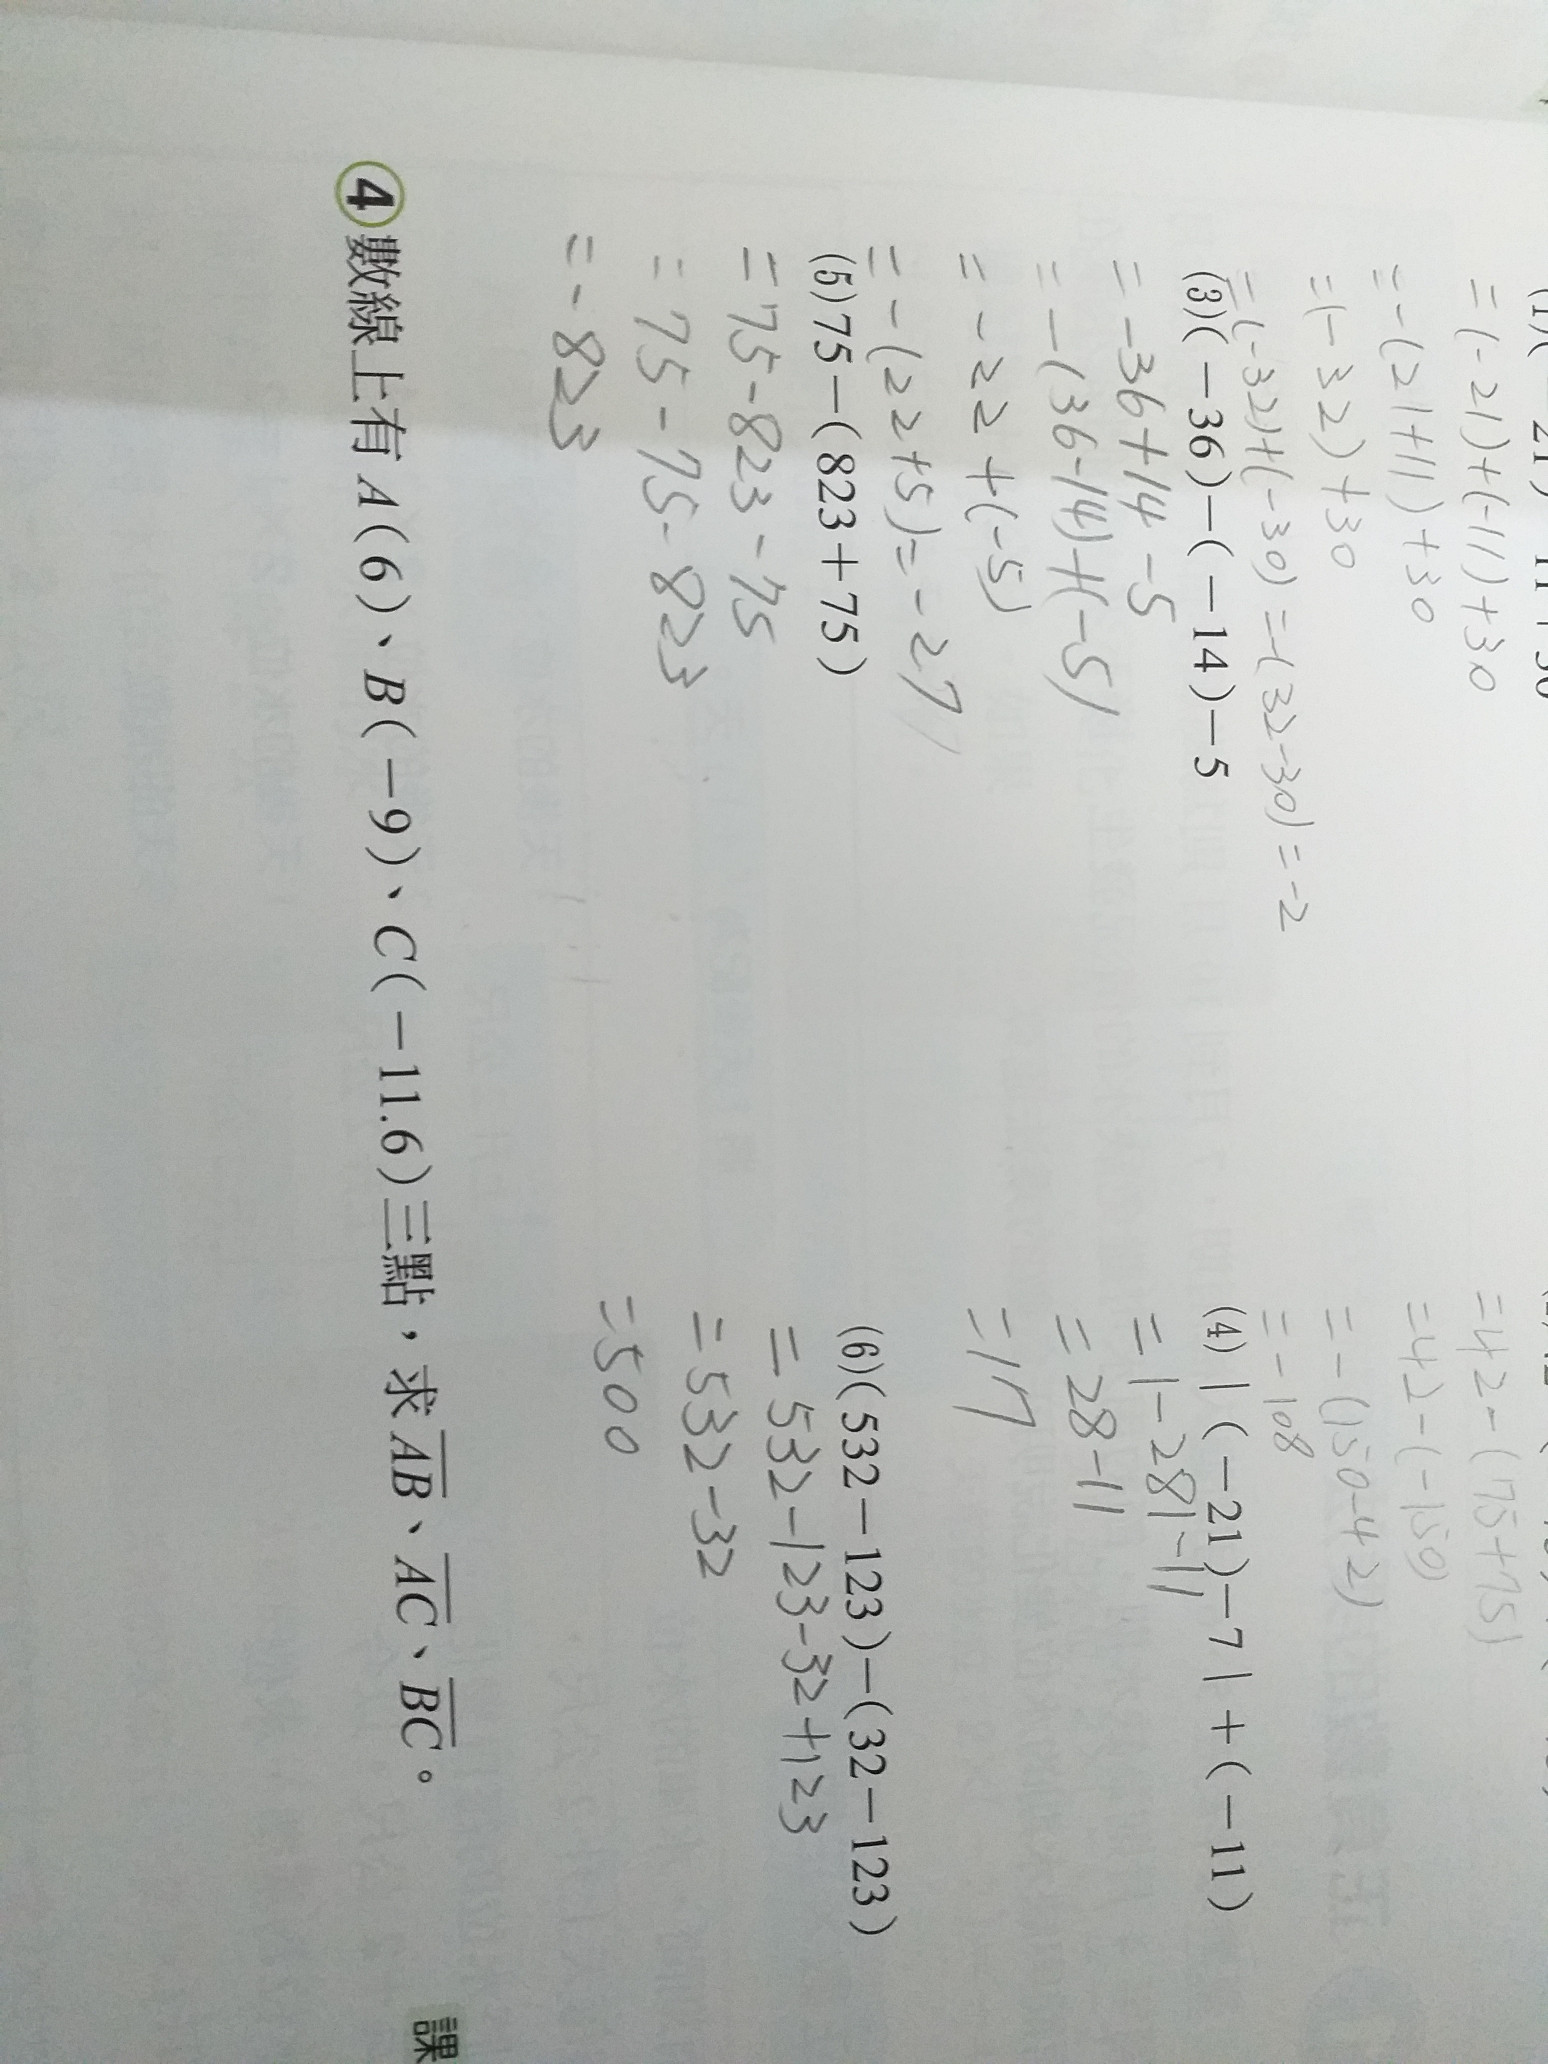 =(-21)+(-11)+30
=-(21+11)+30
=(-32)+30
=(-32)+(-30)=-(32-30)=-2
=42-(75+75)
=42-(-150)
=-(150-42)
=-108
(3)(－36)－(－14)－5
=-36+14-5
=-(36-14)+(-5)
=-22+(-5)
=-(22+5)=-27
(4)|(－21)－7|＋(－11)
=|-28|-11
=28-11
=17
(5)75－(823＋75)
=75-823-75
=75-75-823
=-823
(6)(532－123)－(32－123)
=532-123-32+123
=532-32
=500
④數線上有A(6)、B(－9)、C(－11.6)三點，求AB、AC、BC。
課